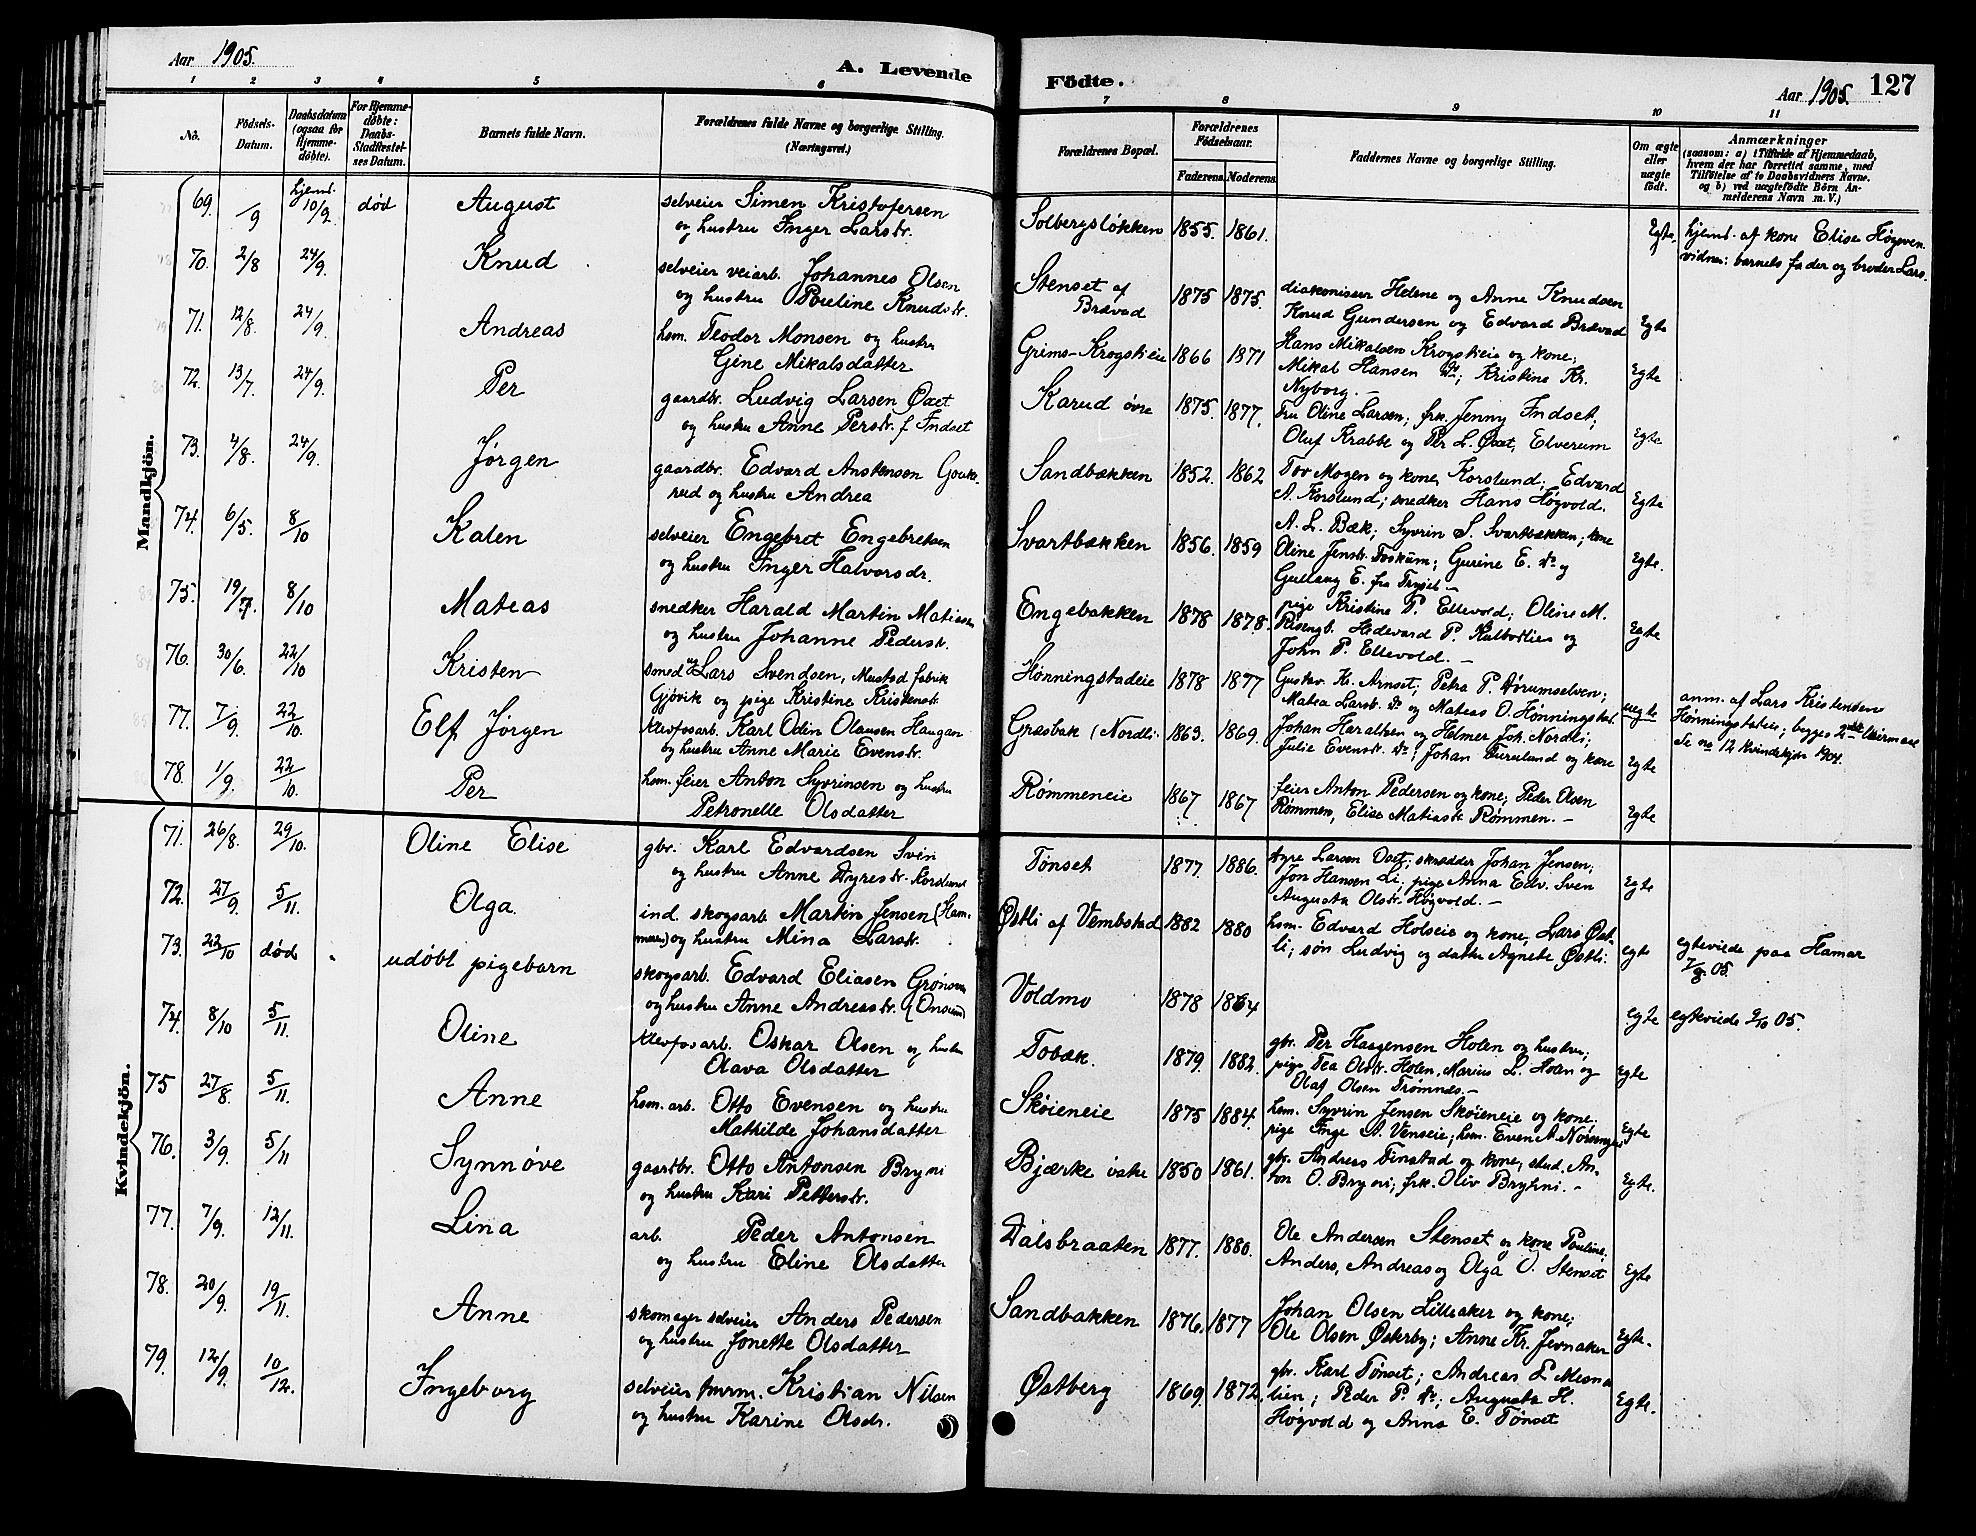 Aar 1905.
A. Levende
Födte.
Aar 1905.
127
1 2 3 4 5 6 7 8 9 10 11
No.
Födsels-Datum.
Daabsdatum (ogsaa for Hjemmedöbte).
For Hjemmedöbte: Daabs-Stadfæstelses Datum.
Barnets fulde Navn.
Forældrenes fulde Navne og borgerlige Stilling. (Næringsvei.)
Forældrenes Bopæl.
Forældrenes Födselsaar.
Faderens Moderens
Faddernes Navne og borgerlige Stilling.
Om ægte eller uægte födt.
Anmærkninger
(saasom: a) i Tilfælde af Hjemmedaab, hvem der har forrettet samme, med Tilföielse af to Daabsvidners Navne. og b) ved uægtefödte Börn Anmelderens Navn m. V.)
Mandkjön.
69. /9 hjemd. 10/9 död August selveier Simen Kristofersen
og hustru Inger Larsdr. Solbergsløkken 1855. 1861. Egte. hjemd. af kone Elise Høgsven
vidner: barnets fader og broder Lars.
70. 2/8 24/9. Knud selveier veiarb. Johannes Olsen
og hustru Pouline Knudsdr. Stenset af Brævad 1875 1875. diakonisser Helene og Anne Knudsen
Knud Gundersen og Edvard Brævad Egte
71. 12/8. 24/9. Andreas hsm. Teodor Monsen og hustru
Gine Mikalsdatter Grims-Krogstieie 1866 1871 Hans Mikalsen Krogstieie og kone;
Mikal Hansen do; Kristine Kr.
Nyborg.— Egte
72. 13/7. 24/9. Per gaardbr. Ludvig Larsen Øset
og hustru Anne Persdr. f Indset Karud øvre 1875. 1877. Fru Oline Larsen; frk. Jenny Indset;
Oluf Krabbe og Per L. Øset, Elverum Egte
73. 4/8. 24/9. Jørgen gaardbr. Edvard Anstensen
og hustru Andrea Sandbækken 1852. 1862 Tor Mogen og kone, Korslund; Edvard
A. Korslund; snedker Hans Høgvold. Egte
74. 6/5. 8/10 Kalen selveier Engebret Engebretsen
og hustru Inger Halvorsdr. Svartbækken 1856. 1859 A. L. Bæk; Syvrin S. Svartbækken; kone
Oline Jensdr. Gurine E. do og
E. fra Trysil— Egte.
75. 19/7. 8/10 Mateas snedker Harald Martin Matiassen
og hustru Johanne Pedersdr. Engebakken 1878 1878. pige Kristine P. Ellevold; Oline M.
Hedevard P. og
John P. Ellevold.— Egte
76. 30/6. 22/10 Kristen smed Lars Svendsen, Mustad fabrik
Gjøvik og pige Kristine Kristensdr. Hønningstadeie 1878 1877 Gustav Kr. Arnset; Petra P.
Matea Larsdr. do og Mateas O. Hønningstad. uegte anm. af Lars Kristensen
Hønningstadeie; begges 2det leiermaal
Se no 12 kvindekjøn 1904.
77. 7/9. 22/10. Elf Jørgen Klevfosarb. Karl Odin Olausen Haugan
og hustru Anne Marie Evensdr. Græsbak (Nordli 1863. 1869. Johan Haraldsen og Helmer Joh. Nordli;
Julie Evensdr. do; Johan Furulund og kone Egte
78. 1/9. 22/10. Per hsm. feier Anton Syvrinsen og hustru
Petronelle Olsdatter Rømmeneie 1867 1867 feier Anton Pedersen og kone; Peder Olsen
Rømmen, Elise Matiasdr. Rømmen.— Egte
Kvindekjön.
71. 26/8. 29/10. Oline Elise gbr. Karl Edvardsen Sven
og hustru Anne Korslund Tønset 1877. 1886. Larsen Oset; skrædder Johan Jensen;
Jon Hansen Li; pige Anna Edv. Sven
Augusta Olsdr. Høgvold.— Egte
72. 27/9. 5/11. Olga. ind. skogsarb. Martin Jensen (Hammeren)
og hustru Mina Larsdr. Østli af Vembstad 1882 1880 hsm. Edvard Holseie og kone, Lars Østli;
søn Ludvig og datter Agnete Østli. egte egteviede paa Hamar
7/8. 05.
73. 22/10 död udöbt pigebarn skogsarb. Edvard Eliasen
og hustru Anne Andreasdr. Voldmo 1878 1864 egte egteviede 9/10 05.
74. 8/10 5/11. Oline Klevfosarb. Oskar Olsen og hustru
Olava Olsdatter Tobæk. 1879. 1882. gbr. Per Haagensen Holen og hustru;
pige Tea Olsdr. Holen, Marius L. Holen og
Olaf Olsen Trømnes.— Egte
75 27/8. 5/11. Anne hsm. arb. Otto Evensen og hustru
Mathilde Johansdatter Skøieneie 1875 1884. hsm. Syvrin Jensen Skøieneie og kone;
pige Inge A. Venseie; hsm. Even A. Egte
76. 3/9. 5/11 Synnøve gaardbr. Otto Antonsen Bryni
og hustru Kari Pettersdr. Bjærke østre 1850 1861. gbr. Andreas Finstad og kone, stud. Anton
O. Bryni; frk. Oliv Bryhni.— Egte.
77. 7/9. 12/11. Lina arb. Peder Antonsen
og hustru Eline Olsdatter Dalsbraaten 1877. 1880. Ole Andersen Stenset og kone Pouline;
Anders, Andreas og Olga O. Stenset Egte
78. 20/9. 19/11. Anne skomager selveier Anders Pedersen
og hustru Jonette Olsdatter Sandbakken 1876. 1877 Johan Olsen Lilleaker og kone;
Ole Olsen Østerby; Anne Kr. Jevnaker Egte.
79. 12/9. 10/12. Ingeborg selveier tmrm. Kristian Nilsen
og hustru Karine Olsdr. Østberg 1869. 1872. gbr. Karl Tønset; Andreas P. Mesnalien;
Peder P. do; Augusta H.
Høgvold og Anna E. Tønset Egte.